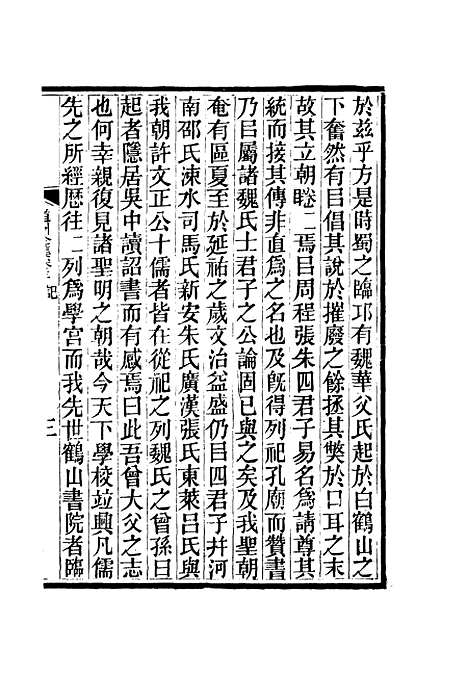 於茲乎方是時蜀之臨邛有魏華父氏起於白鶴山之
下奮然有㠯倡其說於摧廢之餘拯其獘於口耳之末
故其立朝睠二焉㠯周程張朱四君子易名爲請尊其
統而接其傳非直爲之名也及旣得列祀孔廟而贊書
乃㠯屬諸魏氏士君子之公論固已與之矣及我聖朝
奄有區夏至於延祐之歲文治益盛仍㠯四君子幷河
南邵氏涑水司馬氏新安朱氏廣漢張氏東萊呂氏與
我朝許文正公十儒者皆在從祀之列魏氏之曾孫曰
起者隱居吳中讀詔書而有感焉曰此吾曾大父之志
也何幸親復見諸聖明之朝哉今天下學校竝興凡儒
先之所經歷往二列爲學宮而我先世鶴山書院者臨
記 三